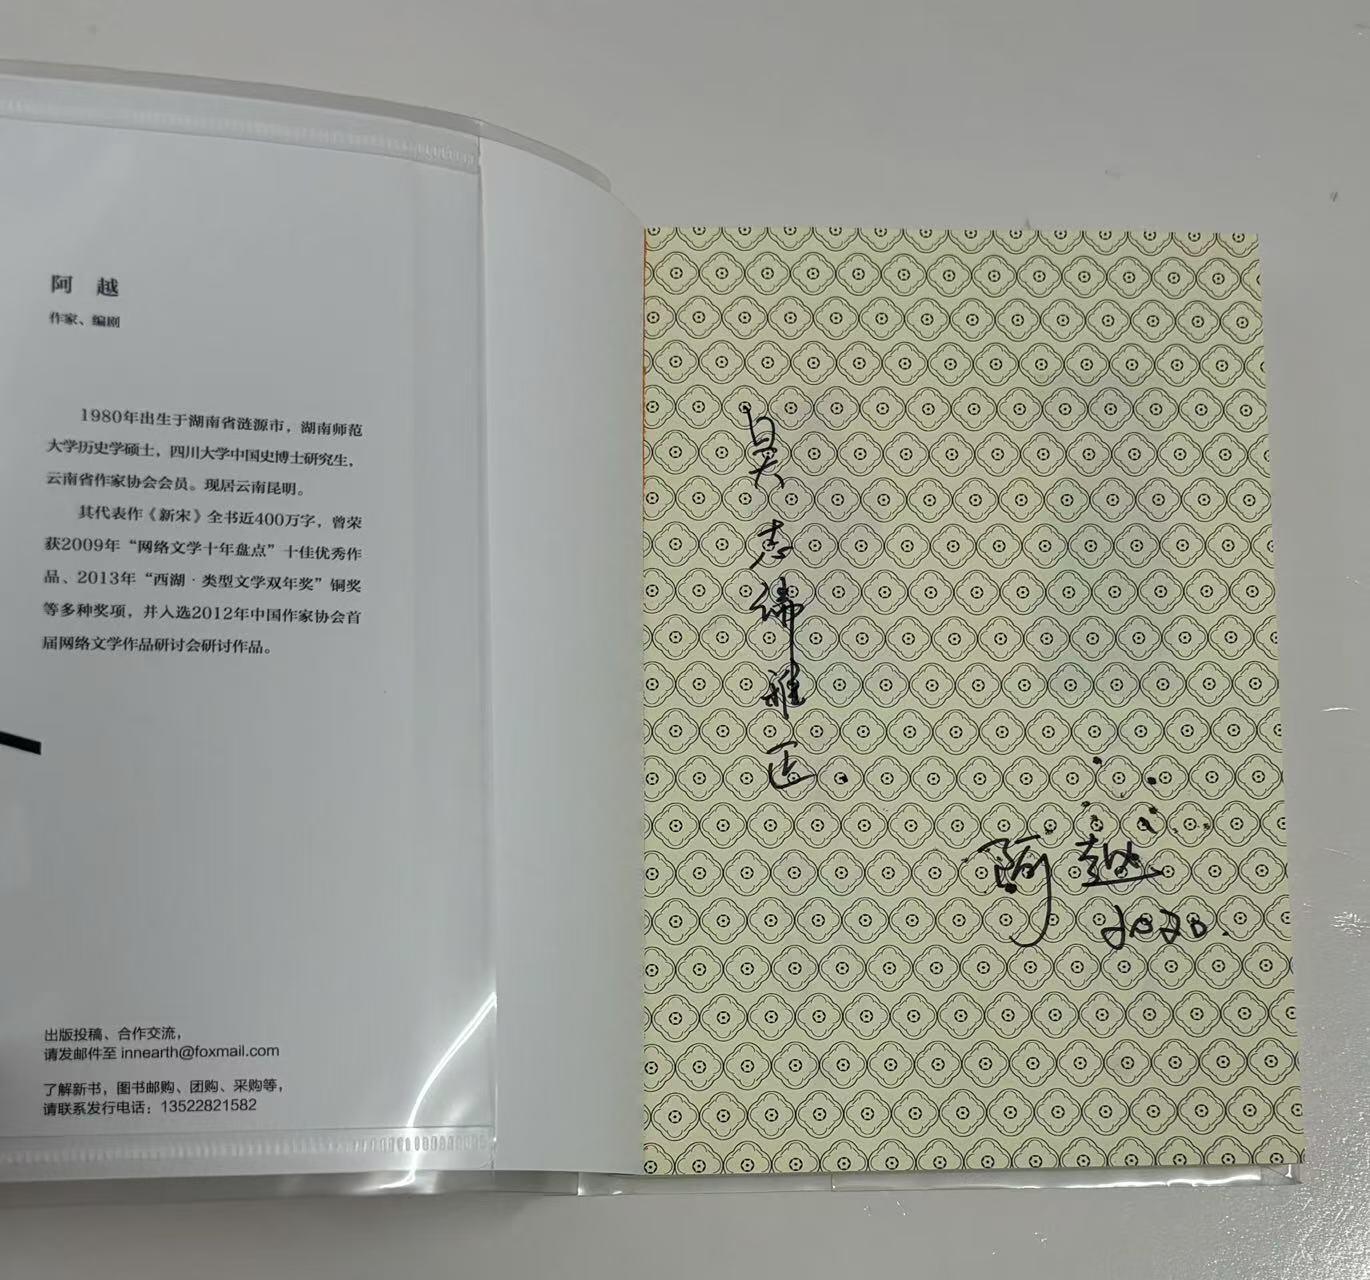 阿 越
作家、编剧
1980年出生于湖南省涟源市，湖南师范
大学历史学硕士，四川大学中国史博士研究生，
云南省作家协会会员。现居云南昆明。
其代表作《新宋》全书近400万字，曾荣
获2009年“网络文学十年盘点”十佳优秀作
品、2013年“西湖·类型文学双年奖”铜奖
等多种奖项，并入选2012年中国作家协会首
届网络文学作品研讨会研讨作品。
出版投稿、合作交流，
请发邮件至 innearth@foxmail.com
了解新书，图书邮购、团购、采购等，
请联系发行电话：13522821582
志
雅正.
阿越
2020.